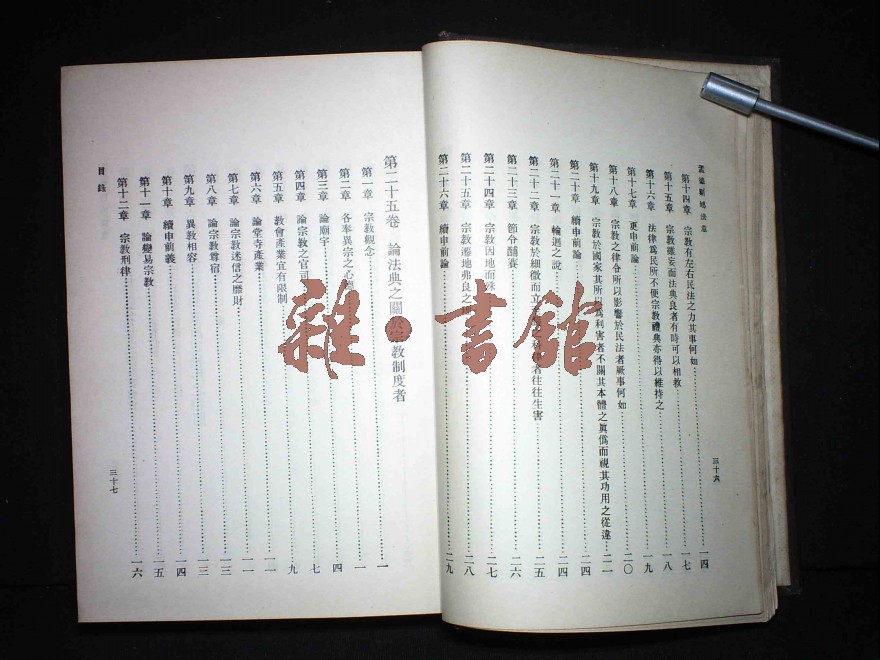 孟德斯鳩法意
三十六
第十四章 宗教有左右民法之力其事何如 一四
第十五章 宗教雖妄而法典良者有時可以相救 一七
第十六章 法律爲民所不便宗教禮典亦得以維持之 一八
第十七章 更申前論 一九
第十八章 宗教之律令所以影響於民法者厥事何如 二〇
第十九章 宗教於國家其所以爲利害者不關其本體之眞僞而視其功用之從違 二一
第二十章 續申前論 二四
第二十一章 輪迴之說 二四
第二十二章 宗教於細微而立 者往往生害 二五
第二十三章 節令酺賽 二六
第二十四章 宗教因地而殊 二七
第二十五章 宗教遷地弗良之 二八
第二十六章 續申前論 二九
第二十五卷 論法典之關於宗教制度者
第一章 宗教觀念 一
第二章 各奉異宗之心 一
第三章 論廟宇 四
第四章 論宗教之官司 七
第五章 教會產業宜有限制 九
第六章 論堂寺產業 一一
第七章 論宗教迷信之靡財 一一
第八章 論宗教尊宿 一三
第九章 異教相容 一三
第十章 續申前義 一四
第十一章 論變易宗教 一五
第十二章 宗教刑律 一六
目錄
三十七
雜·書館